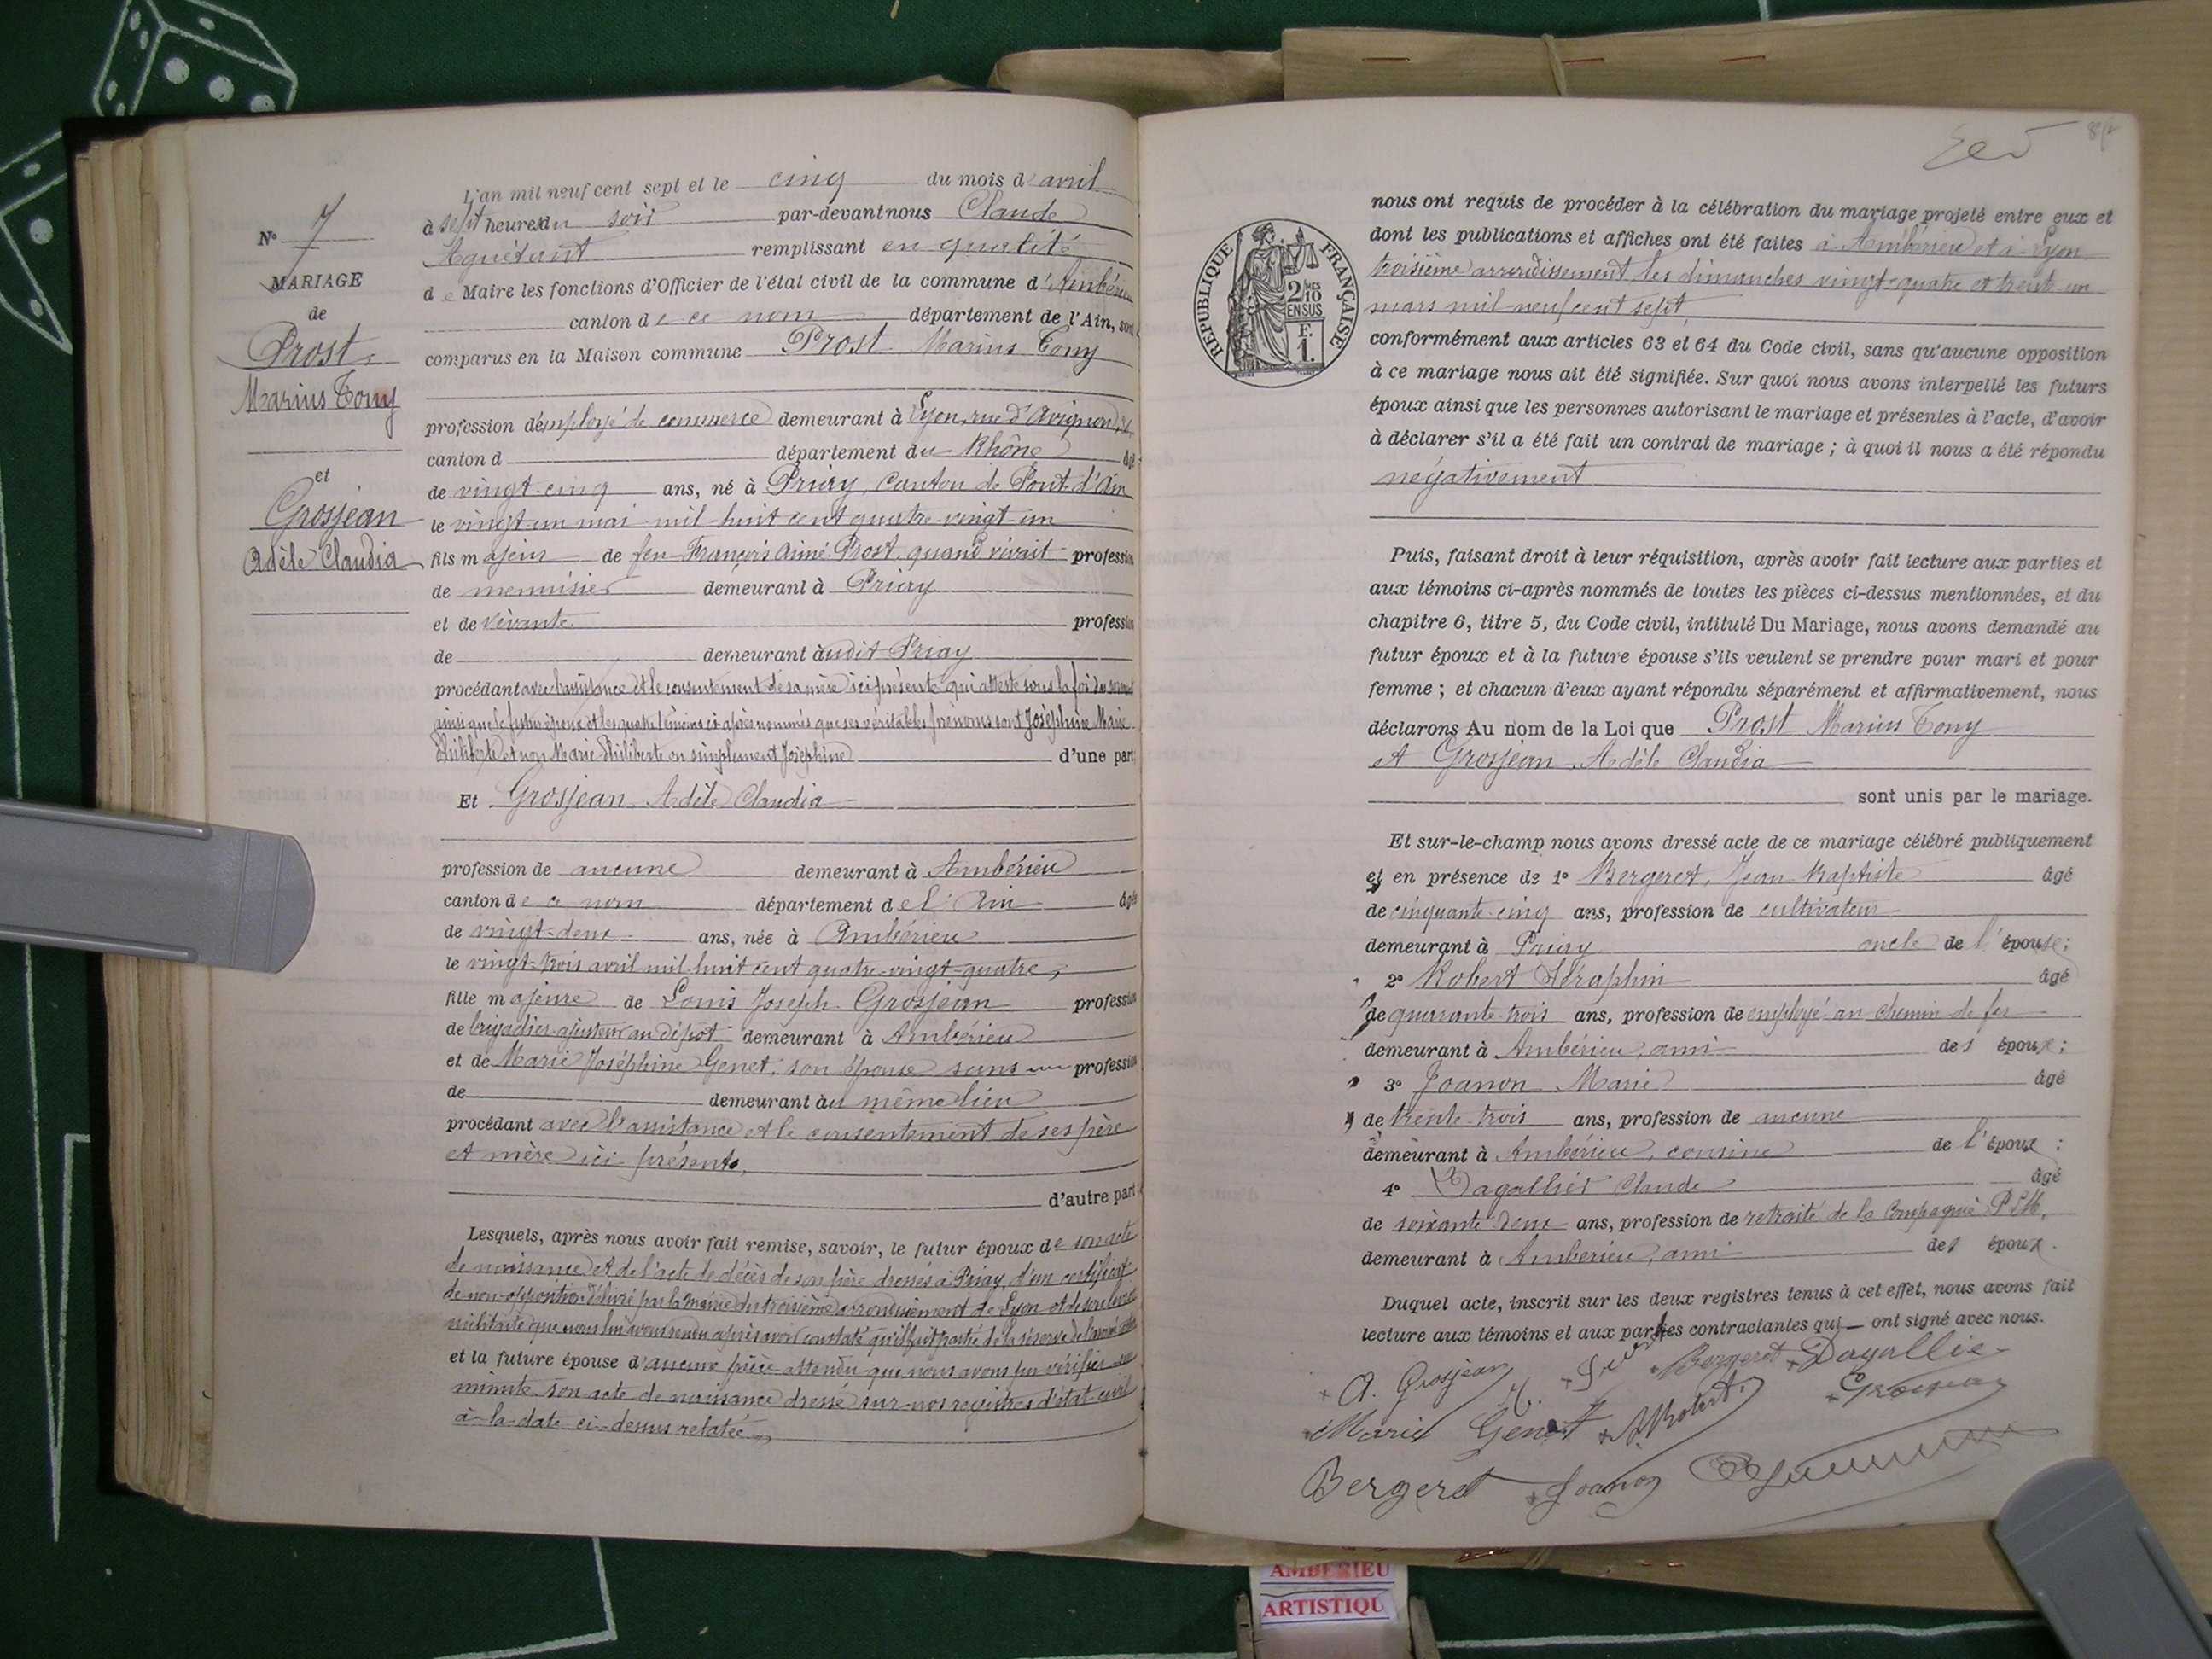 N° 7
MARIAGE
de
Prost
Marius Tony
et
Grosjean
Adèle Claudia
L'an mil neuf cent sept et le cinq du mois d'avril
à sept heures du soir par-devant nous Claude
Aguétant remplissant en qualité
de Maire les fonctions d'Officier de l'état civil de la commune d'Ambérieu
canton de ce nom département de l'Ain, sont
comparus en la Maison commune Prost Marius Tony
profession d'employé de commerce demeurant à Lyon, rue d'Avignon,
canton d département du Rhône âgé
de vingt-cinq ans, né à Priay, canton de Pont-d'Ain
le vingt-un mai mil huit cent quatre-vingt-un
fils majeur de feu François Aimé Prost, quand vivait profession
de menuisier demeurant à Priay
et de vivante profession
de demeurant audit Priay
procédant avec l'assistance et le consentement de sa mère ici présente qui atteste sous la foi du serment
ainsi que le futur époux et les quatre témoins ci-après nommés que ses véritables prénoms sont Joséphine Marie
Philiberte et non Marie Philiberte ou simplement Joséphine d'une part
Et Grosjean Adèle Claudia
profession de aucune demeurant à Ambérieu
canton de ce nom département de l'Ain âgée
de vingt-deux ans, née à Ambérieu
le vingt-trois avril mil huit cent quatre-vingt-quatre,
fille majeure de Louis Joseph Grosjean profession
de brigadier ajusteur au dépôt demeurant à Ambérieu
et de Marie Joséphine Genet, son épouse sans profession
de demeurant au même lieu
procédant avec l'assistance et le consentement de ses père
et mère ici présents,
d'autre part
Lesquels, après nous avoir fait remise, savoir, le futur époux de son acte
de naissance et de l'acte de décès de son père dressés à Priay, d'un certificat
de non-opposition délivré par la mairie du troisième arrondissement de Lyon et de son livret
militaire que nous lui avons rendu après avoir constaté qu'il fait partie de la réserve de l'armée active
et la future épouse d'aucune pièce attendu que nous avons pu vérifier sur
minute son acte de naissance dressé sur nos registres d'état civil
à la date ci-dessus relatée
RÉPUBLIQUE FRANÇAISE
2/10 EN SUS
F. 1.
nous ont requis de procéder à la célébration du mariage projeté entre eux et
dont les publications et affiches ont été faites à Ambérieu et à Lyon
troisième arrondissement, les dimanches vingt-quatre et trente-un
mars mil neuf cent sept,
conformément aux articles 63 et 64 du Code civil, sans qu'aucune opposition
à ce mariage nous ait été signifiée. Sur quoi nous avons interpellé les futurs
époux ainsi que les personnes autorisant le mariage et présentes à l'acte, d'avoir
à déclarer s'il a été fait un contrat de mariage ; à quoi il nous a été répondu
négativement
Puis, faisant droit à leur réquisition, après avoir fait lecture aux parties et
aux témoins ci-après nommés de toutes les pièces ci-dessus mentionnées, et du
chapitre 6, titre 5, du Code civil, intitulé Du Mariage, nous avons demandé au
futur époux et à la future épouse s'ils veulent se prendre pour mari et pour
femme ; et chacun d'eux ayant répondu séparément et affirmativement, nous
déclarons Au nom de la Loi que Prost Marius Tony
et Grosjean Adèle Claudia
sont unis par le mariage.
Et sur-le-champ nous avons dressé acte de ce mariage célébré publiquement
et en présence de 1° Bergeret, Jean Baptiste âgé
de cinquante-cinq ans, profession de cultivateur
demeurant à Priay oncle de l'épouse ;
2° Robert Séraphin âgé
de quarante-trois ans, profession de employé au chemin de fer
demeurant à Ambérieu, ami des époux ;
3° Joanon Marie âgé
de trente-trois ans, profession de aucune
demeurant à Ambérieu, cousine de l'époux ;
4° Dagallier Claude âgé
de soixante-deux ans, profession de retraité de la compagnie P.L.M,
demeurant à Ambérieu, ami des époux.
Duquel acte, inscrit sur les deux registres tenus à cet effet, nous avons fait
lecture aux témoins et aux parties contractantes qui ont signé avec nous.
A. Grosjean Bergeret Dagallier
Marie Genet Robert Grosjean
Bergeret Joanon
AMBERIEU
ARTISTIQU